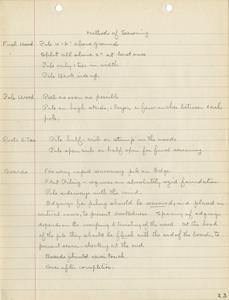 Methods of Seasoning
Fuel Wood Pile 12"-16" above ground
Split all above 2" at least once
Pile only 1 tier in width
Pile Bark side up.
Pole Wood Peel as soon as possible
Pile on high skids. Leave a few inches between each
pole.
Posts & Ties Pile bulk-wise or stump in the woods
Pile open wise or half open for final seasoning.
Boards For very rapid seasoning pile on Edge.
Flat Piling - requires an absolutely rigid foundation
Pile endways with the wind.
Edgings for piling should be seasoned, and placed in
vertical rows, to prevent crookedness. Spacing of edgings
depends on the tendency to warping of the wood. At the head
of the pile they should be flush with the end of the boards, to
prevent season-checking at the end
Boards should never touch
Cover after completion.
23